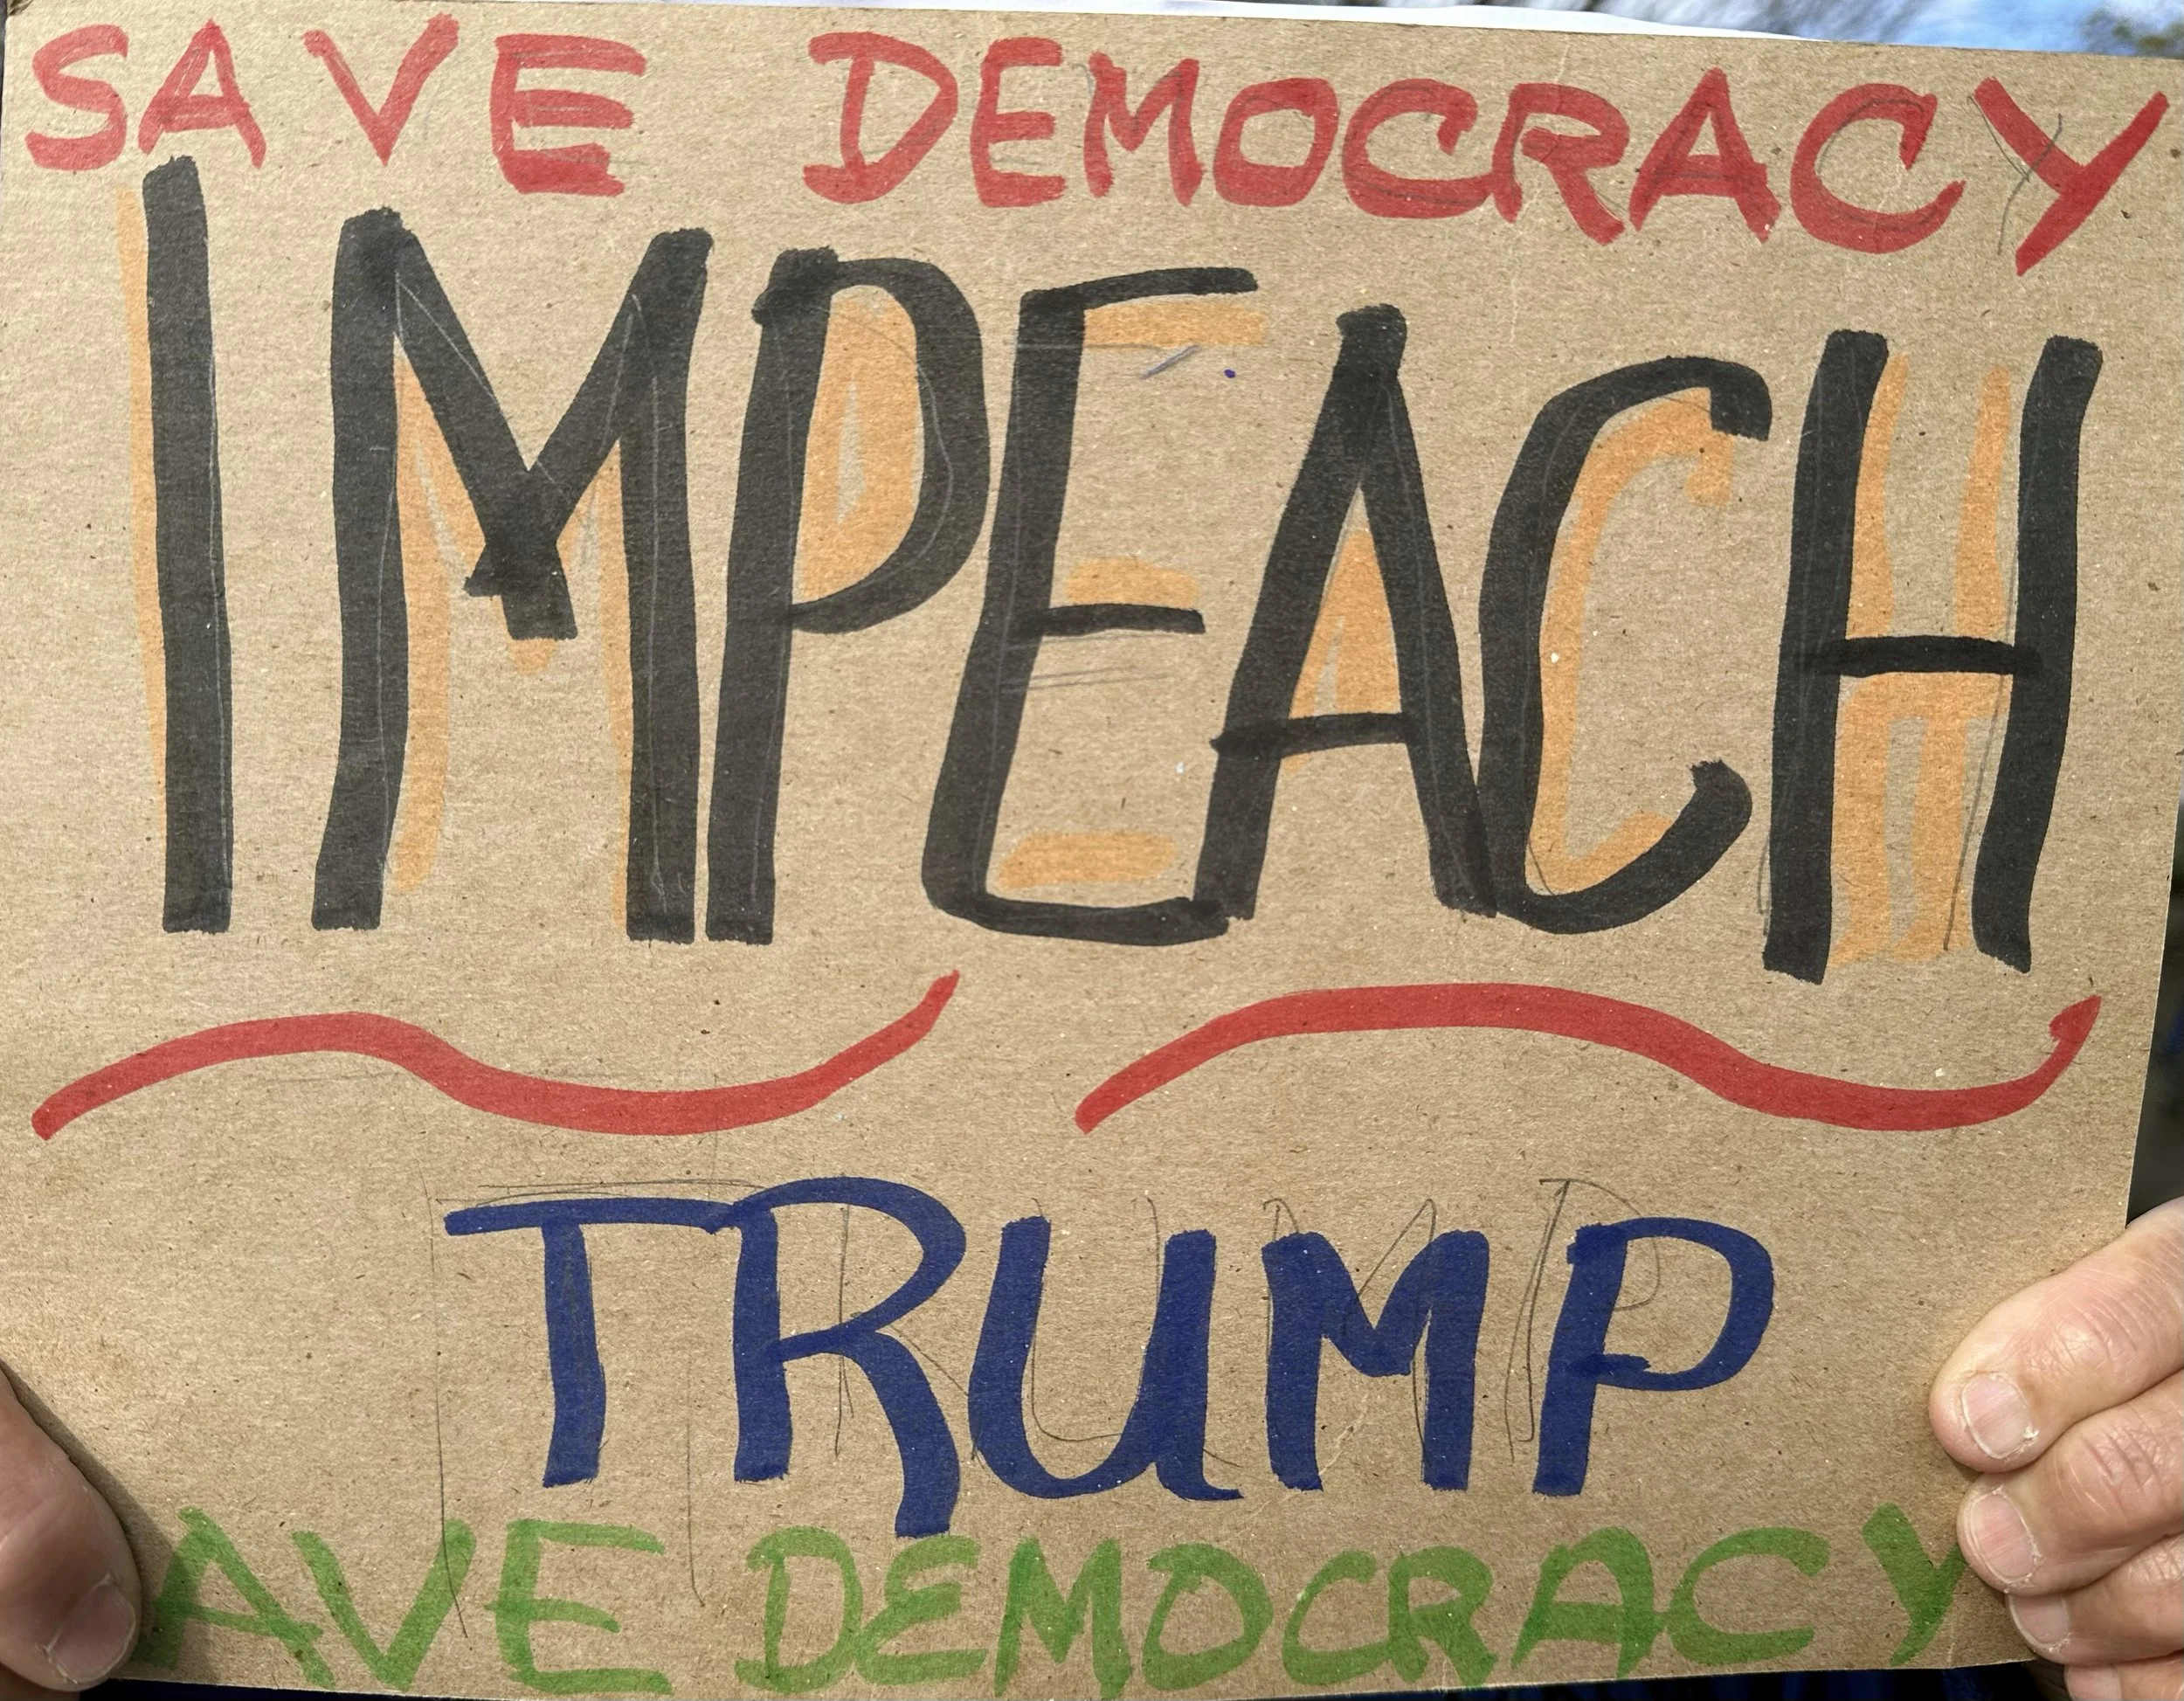 SAVE DEMOCRACY
IMPEACH
TRUMP
AVE DEMOCRACY